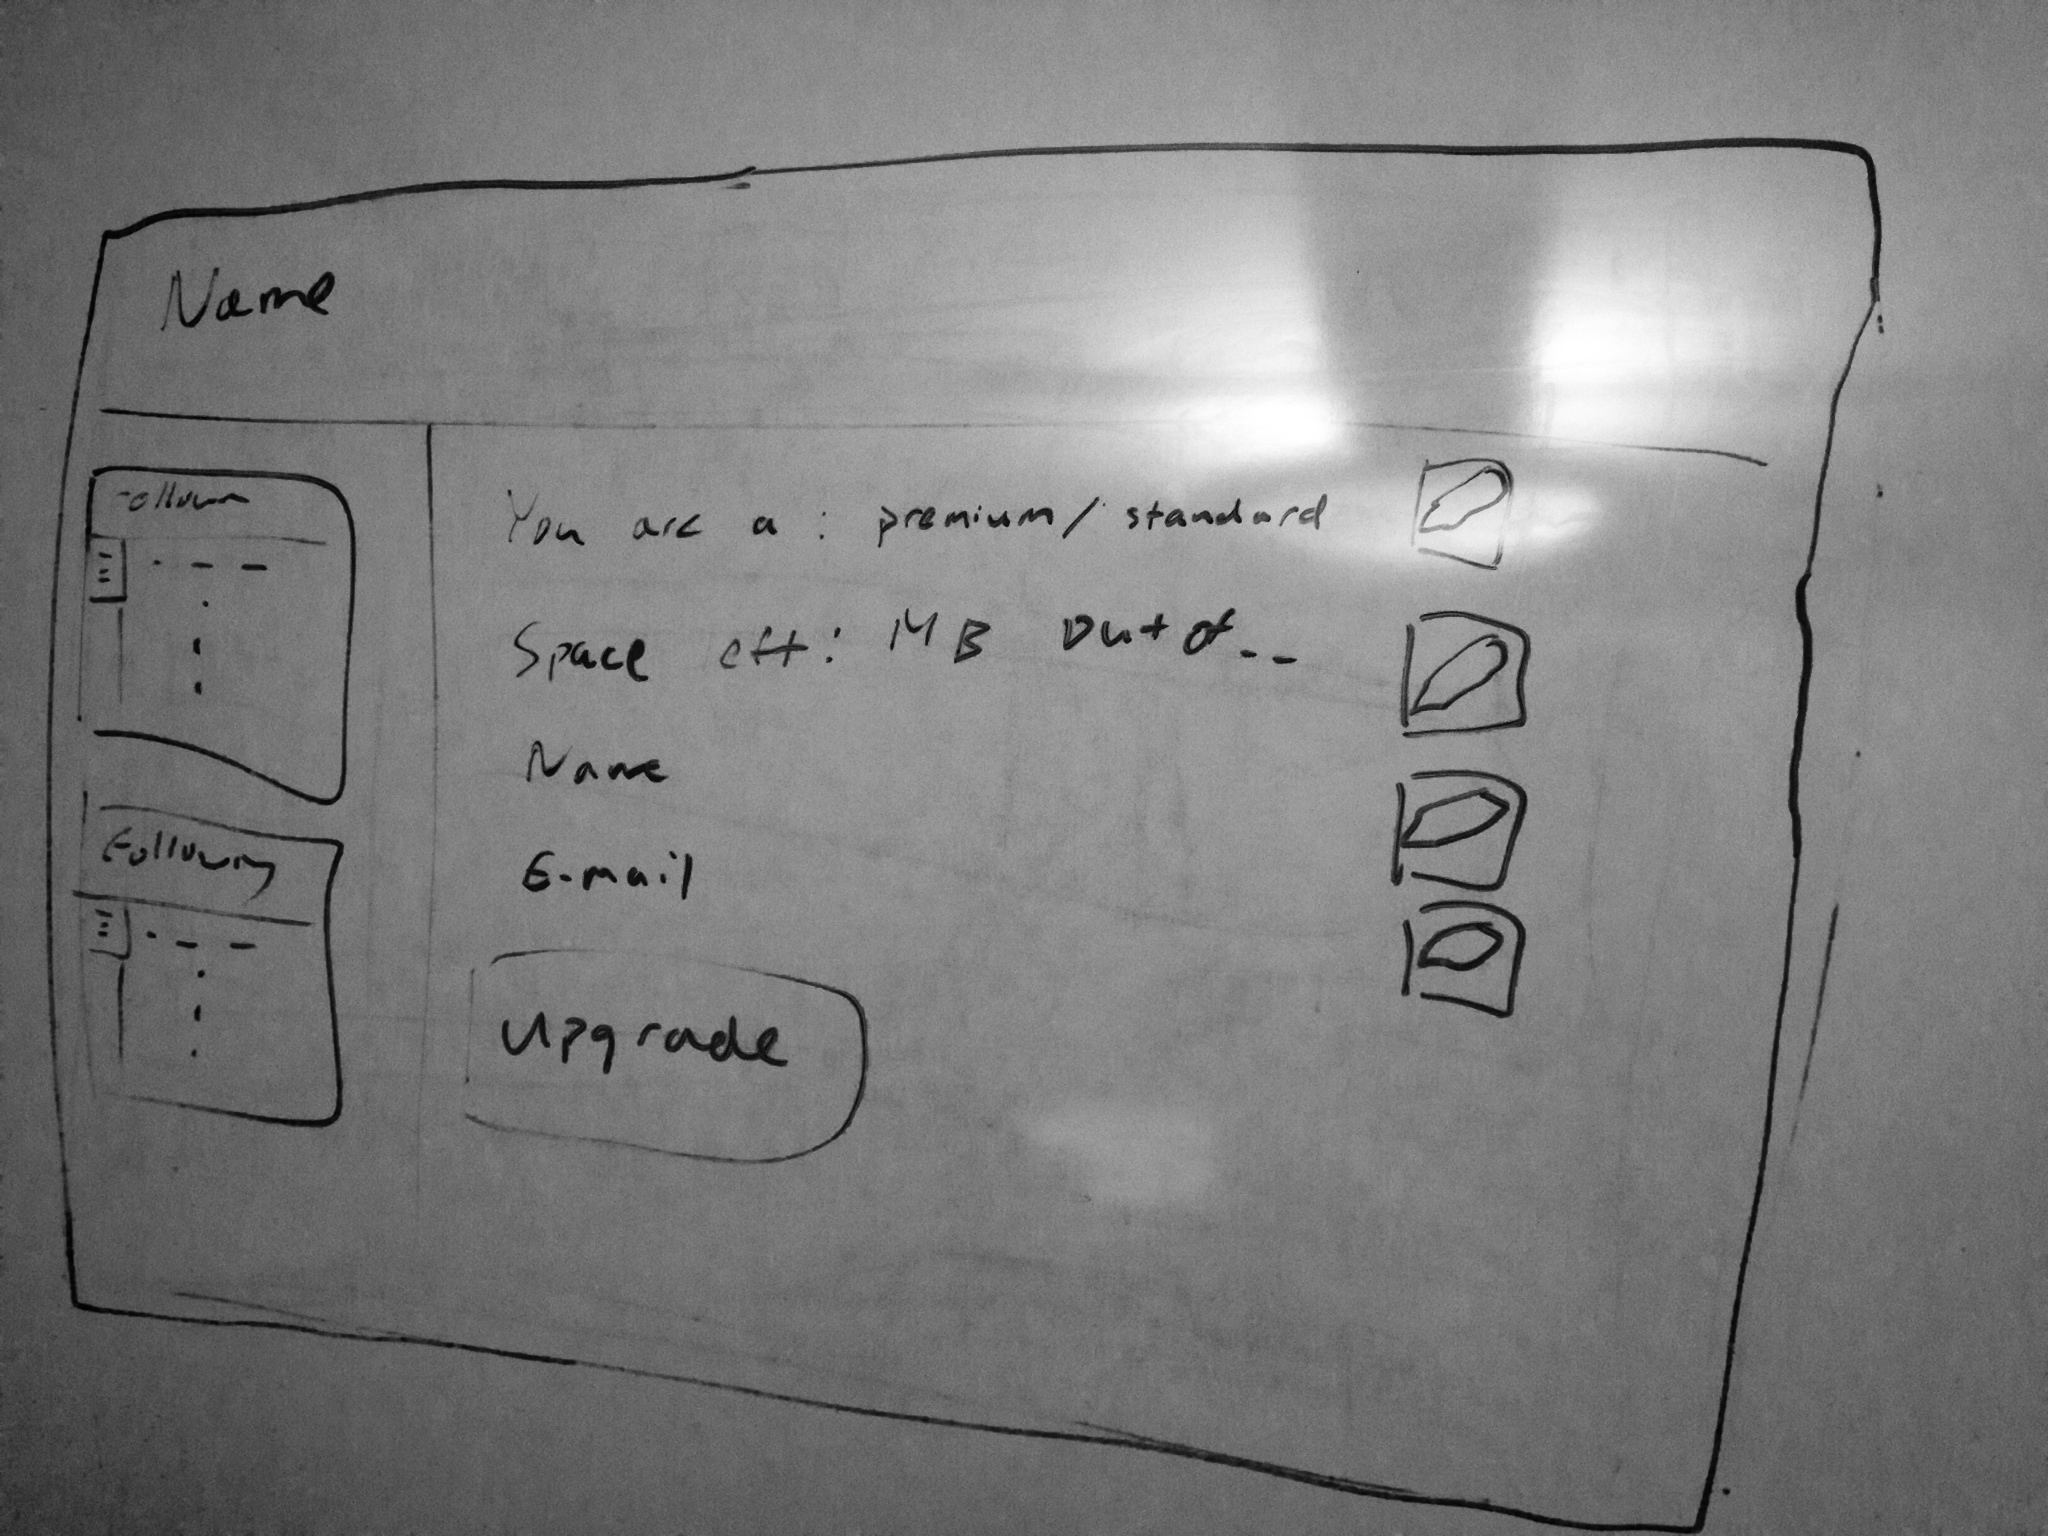 Name
Following
You are a : premium/standard
Space : MB out of --
Name
E-mail
Upgrade